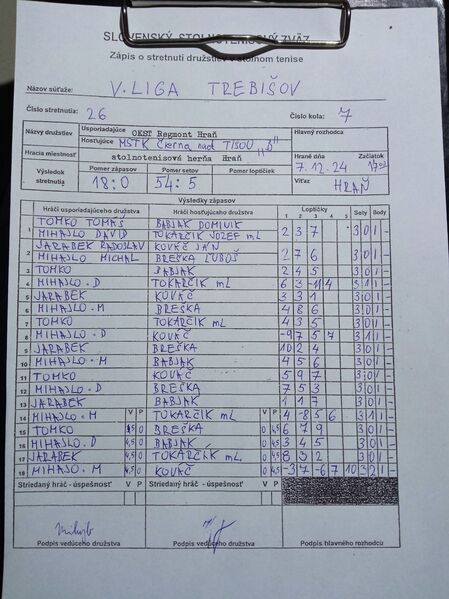 SLOVENSKÝ STOLNOTENISOVÝ ZVÄZ
Zápis o stretnutí družstiev v stolnom tenise
Názov súťaže: V. LIGA TREBIŠOV
Číslo stretnutia: 26 Číslo kola: 7
Názvy družstiev Usporiadajúce OKST Regmont Hraň Hlavný rozhodca
Hosťujúce MSTK Čierna nad TISOU „B"
Hracia miestnosť stolnotenisová herňa Hraň Hrané dňa 7.12.24 Začiatok
Výsledok stretnutia Pomer zápasov 18:0 Pomer setov 54:5 Pomer loptičiek Víťaz HRAŇ
Výsledky zápasov
Hráči usporiadajúceho družstva Hráči hosťujúceho družstva Loptičky Sety Body
1 2 3 4 5
1 TOMKO TOMÁŠ BABJAK DOMINIK
MIHAJLO DÁVID TOKARČIK JOZEF ml. 2 3 7 3 0 1 -
2 JARABEK RADOSLAV KOVÁČ JÁN
MIHAJLO MICHAL BREŠKA ĽUBOŠ 2 7 6 3 0 1 -
3 TOMKO BABJAK 2 4 5 3 0 1 -
4 MIHAJLO . D TOKARČIK ml 6 3 -11 4 3 1 1 -
5 JARABEK KOVÁČ 3 3 1 3 0 1 -
6 MIHAJLO . M BREŠKA 4 8 6 3 0 1 -
7 TOMKO TOKARČIK ml 4 3 5 3 0 1 -
8 MIHAJLO . D KOVÁČ -9 7 5 7 3 1 1 -
9 JARABEK BREŠKA 10 2 4 3 0 1 -
10 MIHAJLO . M BABJAK 4 5 6 3 0 1 -
11 TOMKO KOVÁČ 5 9 7 3 0 1 -
12 MIHAJLO . D BREŠKA 7 5 3 3 0 1 -
13 JARABEK BABJAK 1 1 7 3 0 1 -
14 MIHAJLO . M V P TOKARČIK ml V P 4 -8 5 6 3 1 1 -
15 TOMKO 0 BREŠKA 0 4,5 6 7 9 3 0 1 -
16 MIHAJLO . D 4,5 0 BABJAK 0 4,5 3 4 5 3 0 1 -
17 JARABEK 4,5 0 TOKARČIK ml 0 4,5 8 3 2 3 0 1 -
18 MIHAJLO . M 4,5 0 KOVÁČ 0 4,5 -3 7 -6 7 10 3 2 1 -
Striedaný hráč - úspešnosť V P Striedaný hráč - úspešnosť V P
Podpis vedúceho družstva Podpis vedúceho družstva Podpis hlavného rozhodcu